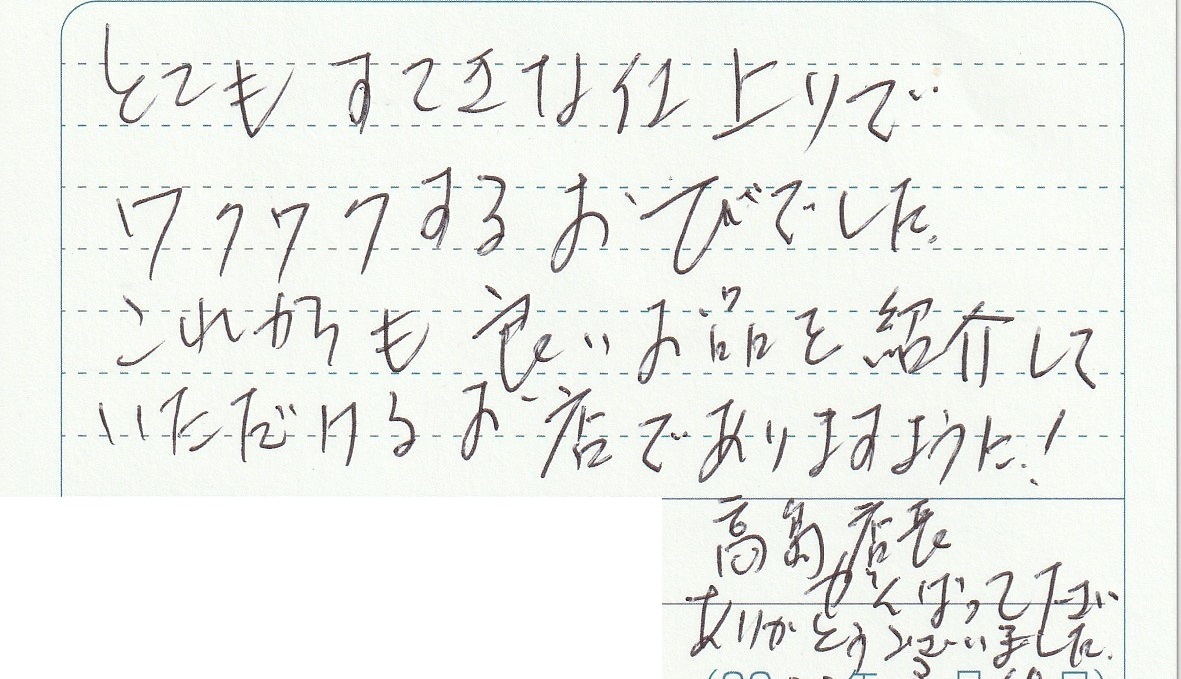 とてもすてきな仕上りで
ワクワクするおびでした。
これからも良いお品を紹介して
いただけるお店でありますように!
高島店長
がんばって下さい
ありがとうございました。